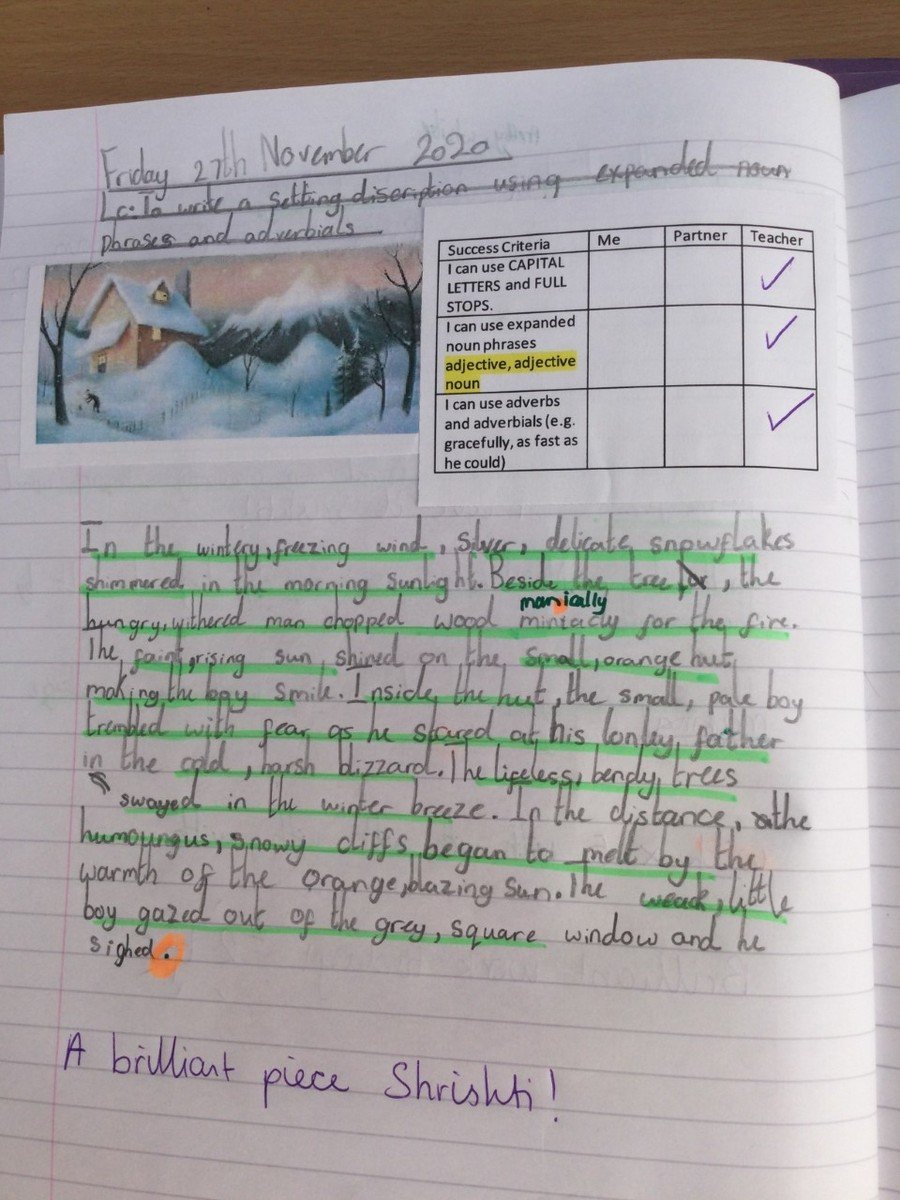 Friday 27th November 2020
Lc: To write a setting discription using expanded noun
phrases and adverbials
Success Criteria Me Partner Teacher
I can use CAPITAL
LETTERS and FULL
STOPS.
I can use expanded
noun phrases
adjective, adjective
noun
I can use adverbs
and adverbials (e.g.
gracefully, as fast as
he could)
In the wintery, freezing wind, silver, delicate snowflakes
shimmered in the morning sunlight. Beside the tree, the
manically
hungry, withered man chopped wood mintacly for the fire.
The faint, rising sun shined on the small, orange hut
making the boy smile. Inside the hut, the small, pale boy
trembled with fear as he stared at his lonley father
in the cold, harsh blizzard. The lifeless, bendy trees
swayed in the winter breeze. In the distance, the
humoungus, snowy cliffs began to melt by the
warmth of the orange, blazing sun. The weak, little
boy gazed out of the grey, square window and he
sighed.
A brilliant piece Shrishti!